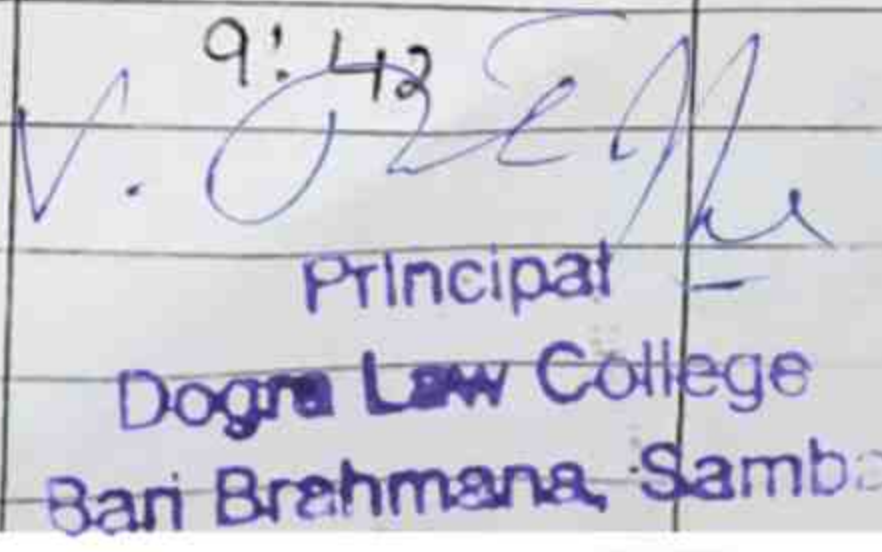 9:42
V.
Principal
Dogra Law College
Bari Brahmana, Samba